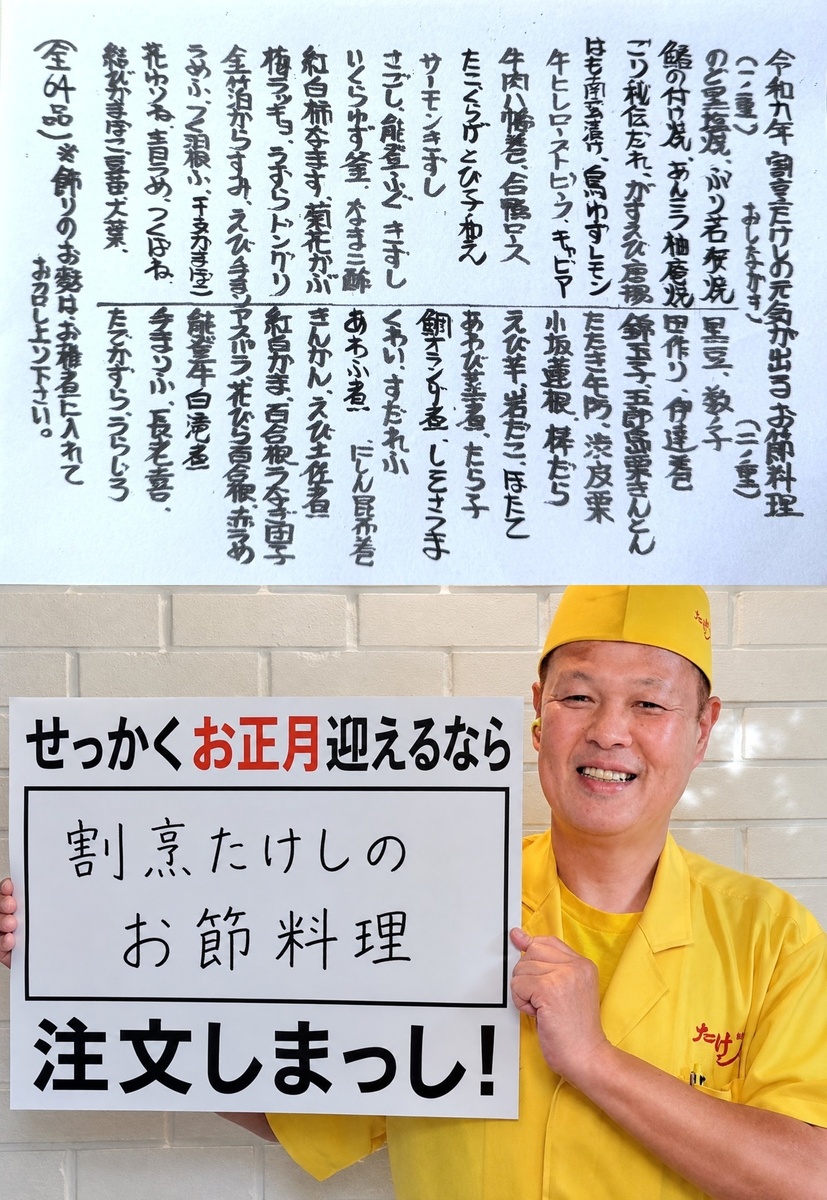 令和九年 割烹たけしの元気が出る お節料理
おしながき
(一ノ重)
のど黒塩焼、ぶり若狭焼
の付け焼、あんこう柚庵焼
ごり秘伝だれ、がすえび唐揚
はも南蛮漬け、鳥ゆずレモン
牛ヒレローストビーフ キャビア
牛肉八幡巻、合鴨ロース
たこくらげ とび子和え
サーモンきずし
さごし、能登ふぐ きずし
いくらゆず釜、なまこ酢
紅白柿なます、菊花かぶ
梅ラッキョ、うずらドングリ
金箔からすみ、えび手まり
うめふ、つく羽根ふ、干支かまぼこ
花ゆりね、青うめ、つくばね、
結びかまぼこ、豆苗、犬葉、
(二ノ重)
黒豆、数子
田作り、伊達巻
錦玉子、五郎島栗きんとん
たたき牛蒡、渋皮栗
小坂蓮根、棒だら
えび芋、岩だこ、ほたて
あわび柔煮、たら子
鯛オランダ煮、しそさつま
くわい、すだれふ
あわふ煮 にしん昆布巻
きんかん、えび土佐煮
紅白かま、百合根うなぎ団子
アスパラ、花びら百合根、赤うめ
能登牛白滝煮
手まりふ、長老喜、
たでかずら、うらじろ
(全64品)※飾りのお麩は、お椀煮に入れて
お召し上り下さい。
せっかくお正月迎えるなら
割烹たけしの
お節料理
注文しまっし!
たけし
たけし